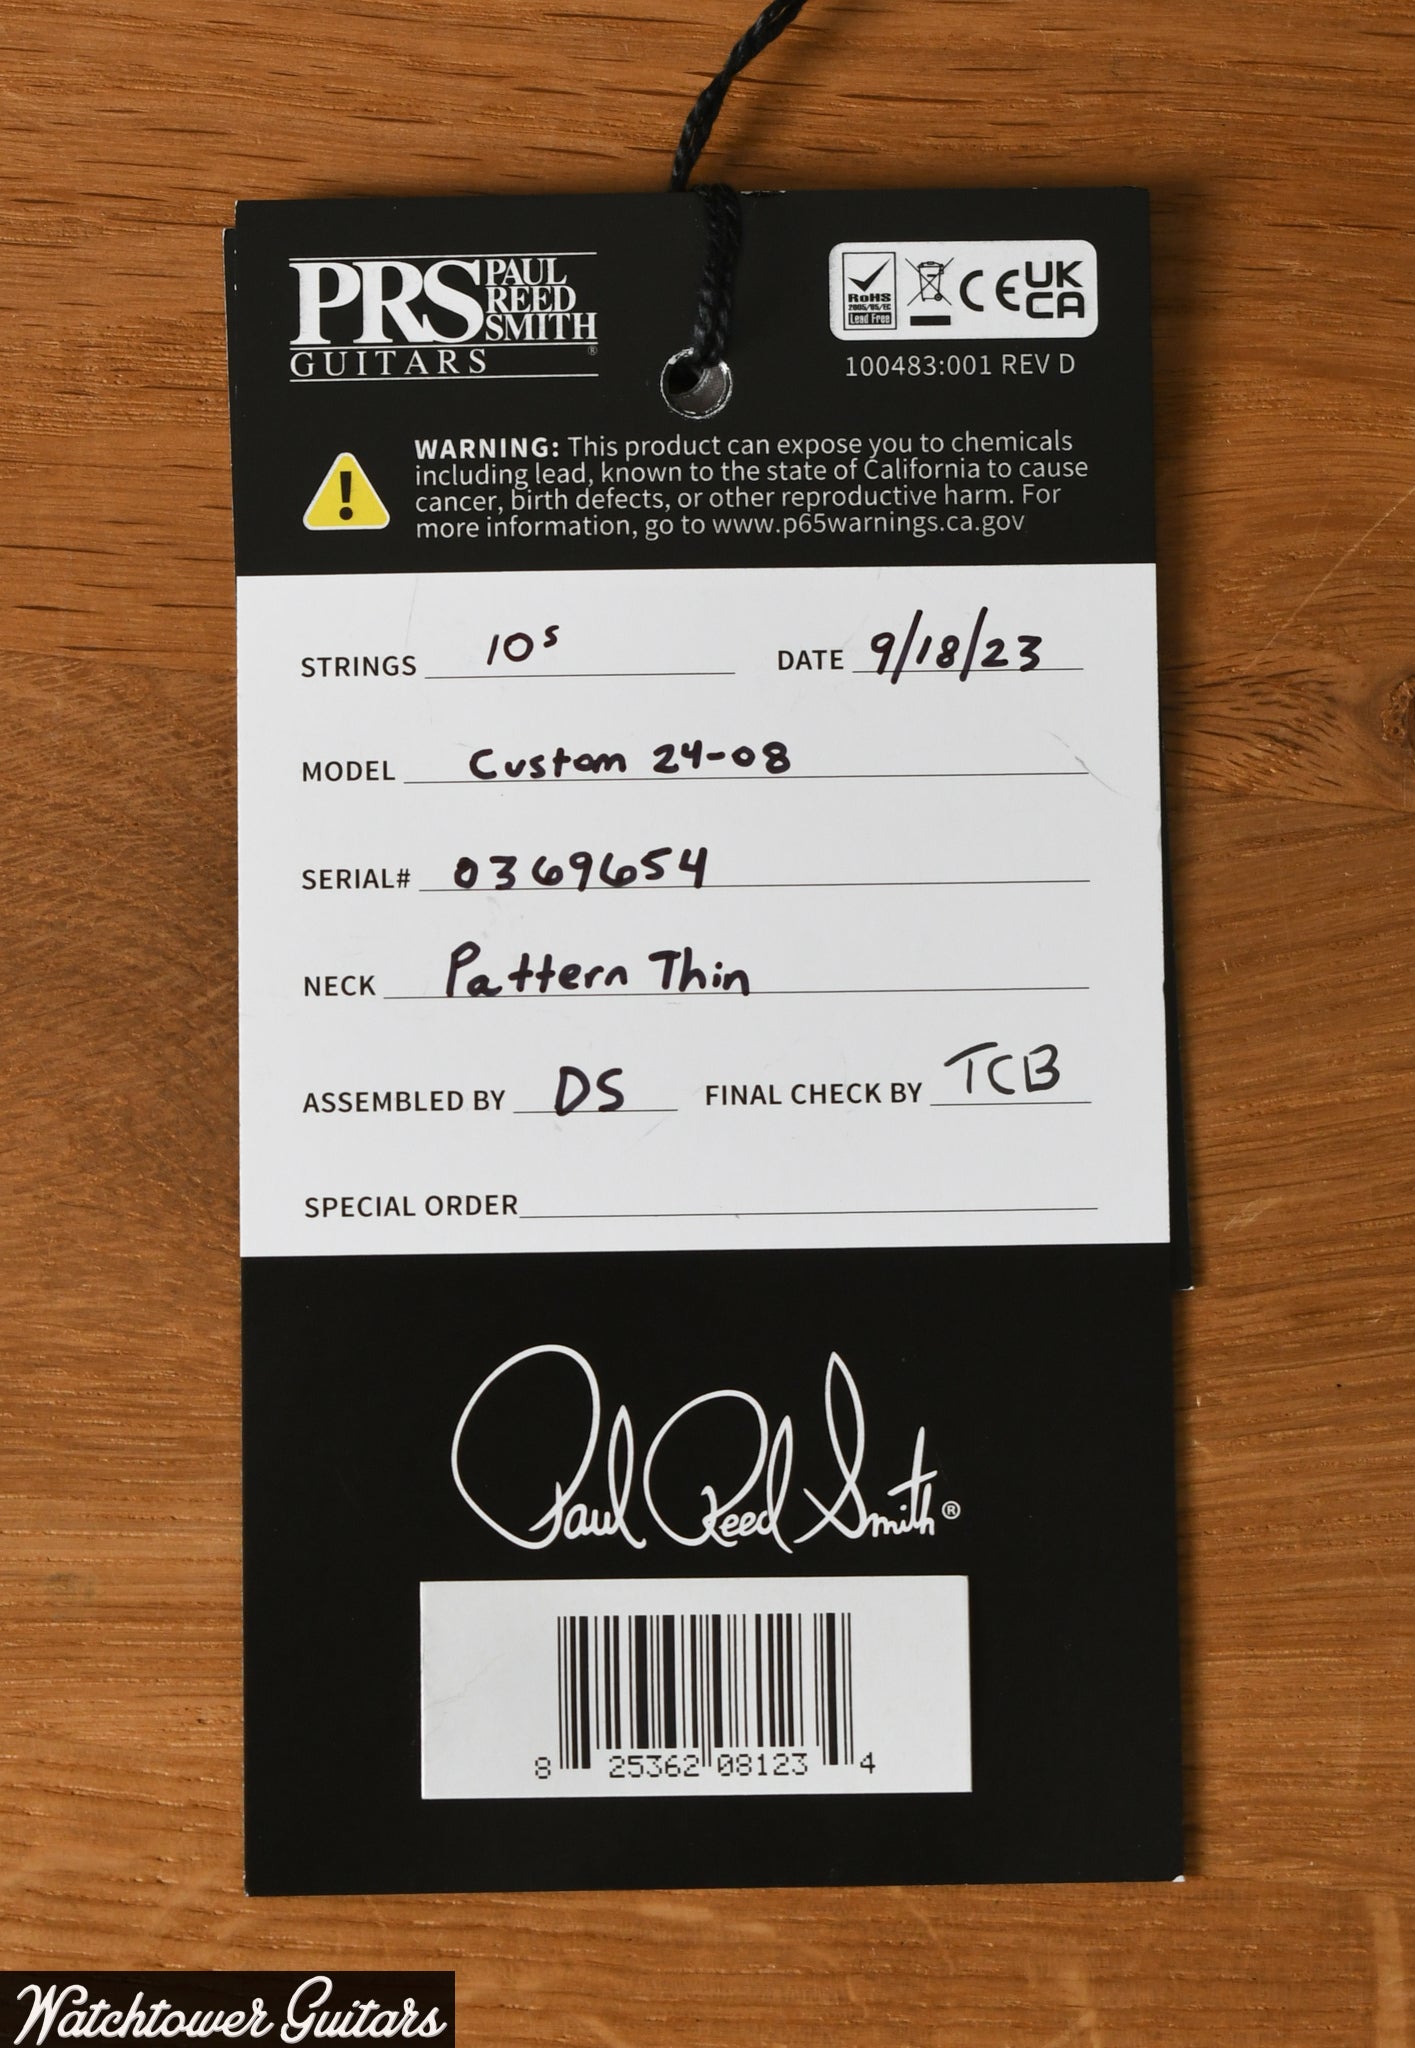 PRS PAUL
REED
SMITH
GUITARS ®
RoHS
2005/95/EC
Lead Free
CE UK
CA
100483:001 REV D
WARNING: This product can expose you to chemicals
including lead, known to the state of California to cause
cancer, birth defects, or other reproductive harm. For
more information, go to www.p65warnings.ca.gov
STRINGS 10s DATE 9/18/23
MODEL Custom 24-08
SERIAL# 0369654
NECK Pattern Thin
ASSEMBLED BY DS FINAL CHECK BY TCB
SPECIAL ORDER
Paul Reed Smith ®
8 25362 08123 4
Watchtower Guitars